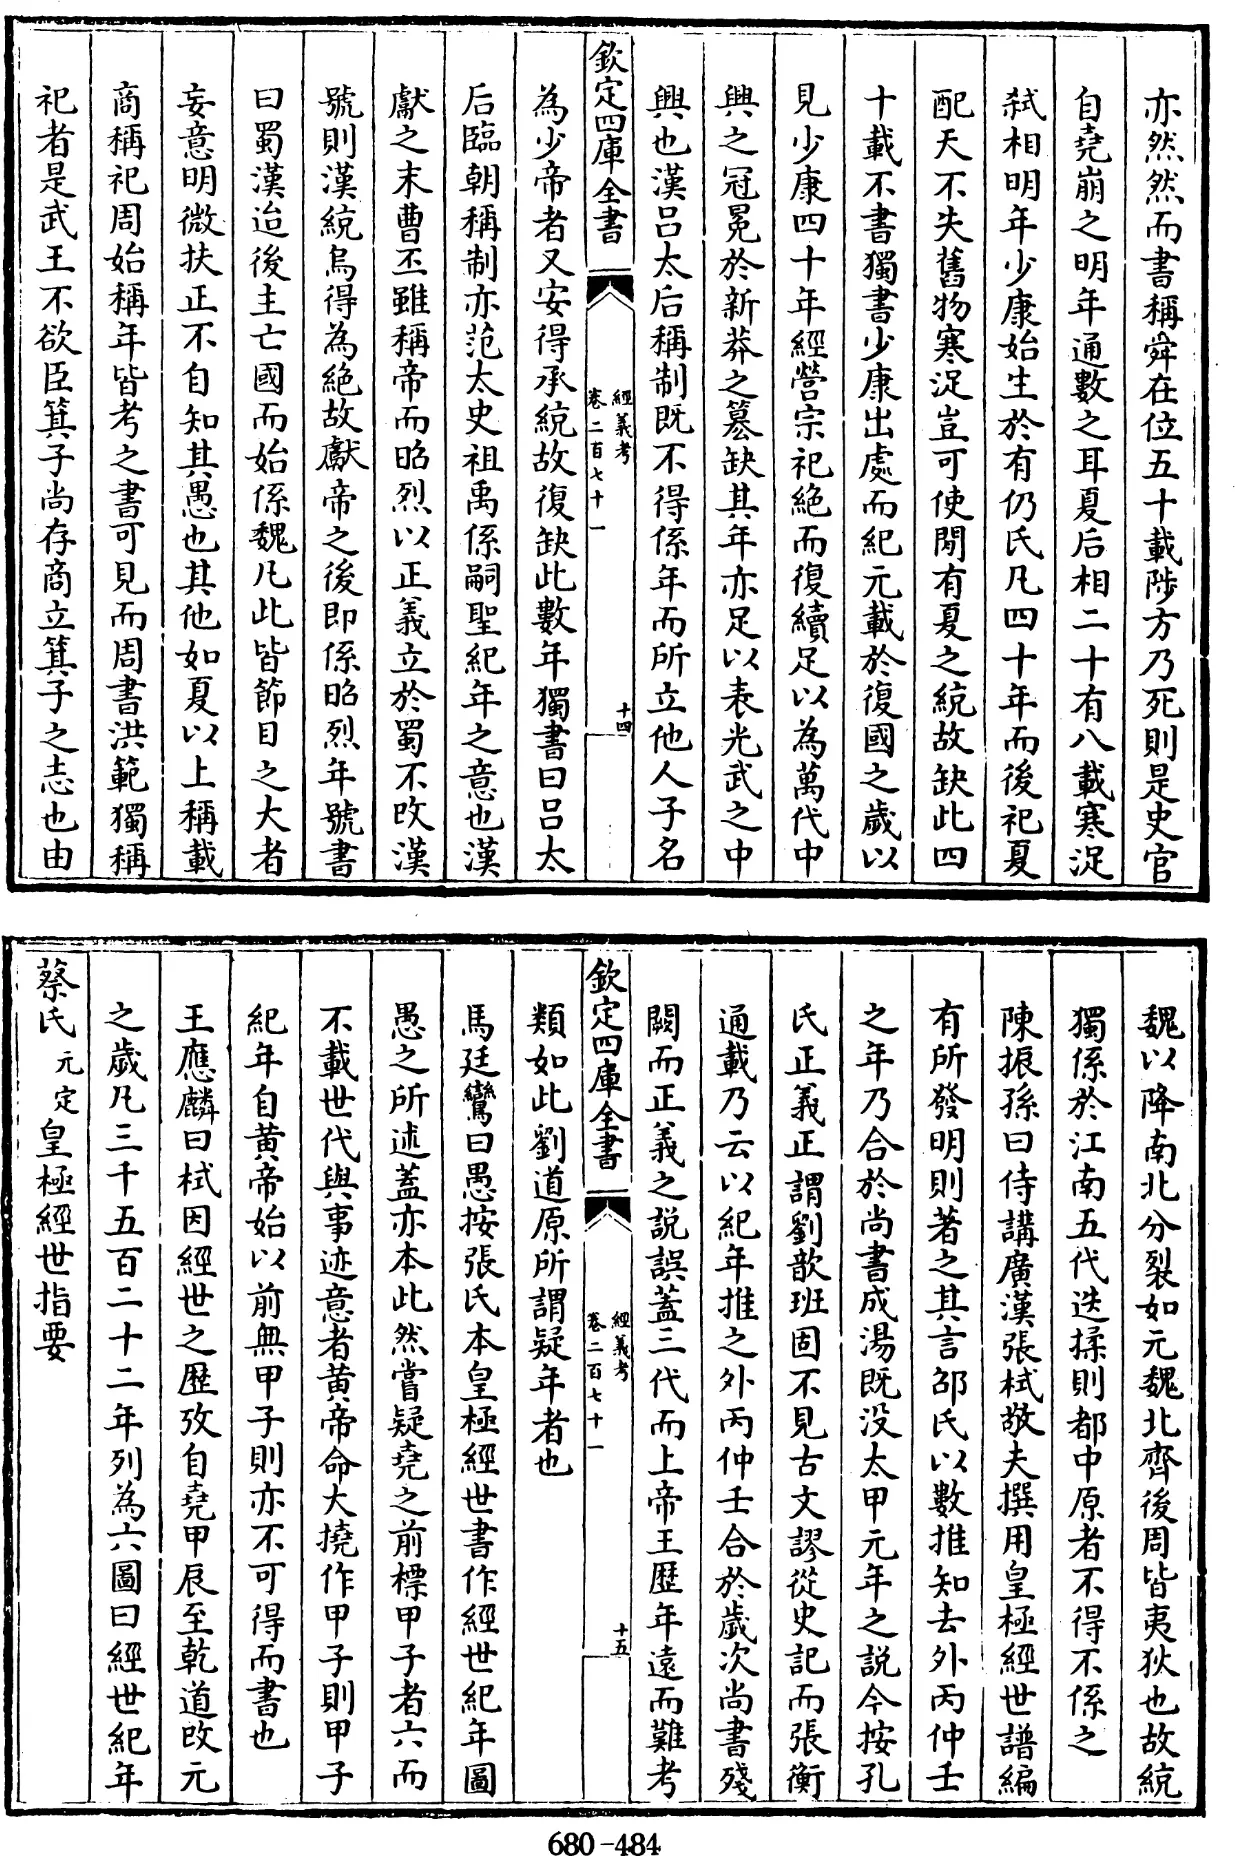 亦然然而書稱舜在位五十載陟方乃死則是史官
自堯崩之明年通數之耳夏后相二十有八載寒浞
弑相明年少康始生於有仍氏凡四十年而後祀夏
配天不失舊物寒浞豈可使閒有夏之統故缺此四
十載不書獨書少康出處而紀元載於復國之歲以
見少康四十年經營宗祀絶而復續足以為萬代中
興之冠冕於新莽之簒缺其年亦足以表光武之中
興也漢呂太后稱制既不得係年而所立他人子名
欽定四庫全書
經義考
卷二百七十一
十四
為少帝者又安得承統故復缺此數年獨書曰呂太
后臨朝稱制亦范太史祖禹係嗣聖紀年之意也漢
獻之末曹丕雖稱帝而昭烈以正義立於蜀不改漢
號則漢統烏得為絶故獻帝之後即係昭烈年號書
曰蜀漢迨後主亡國而始係魏凡此皆節目之大者
妄意明微扶正不自知其愚也其他如夏以上稱載
商稱祀周始稱年皆考之書可見而周書洪範獨稱
祀者是武王不欲臣箕子尚存商立箕子之志也由
魏以降南北分裂如元魏北齊後周皆夷狄也故統
獨係於江南五代迭揉則都中原者不得不係之
陳振孫曰侍講廣漢張栻敬夫撰用皇極經世譜編
有所發明則著之其言邵氏以數推知去外丙仲壬
之年乃合於尚書成湯既没太甲元年之説今按孔
氏正義正謂劉歆班固不見古文謬從史記而張衡
通載乃云以紀年推之外丙仲壬合於歲次尚書殘
闕而正義之説誤蓋三代而上帝王歴年遠而難考
欽定四庫全書
經義考
卷二百七十一
十五
類如此劉道原所謂疑年者也
馬廷鸞曰愚按張氏本皇極經世書作經世紀年圖
愚之所述蓋亦本此然嘗疑堯之前標甲子者六而
不載世代與事迹意者黄帝命大撓作甲子則甲子
紀年自黄帝始以前無甲子則亦不可得而書也
王應麟曰栻因經世之歴攷自堯甲辰至乾道改元
之歲凡三千五百二十二年列為六圖曰經世紀年
蔡氏元定皇極經世指要
680-484